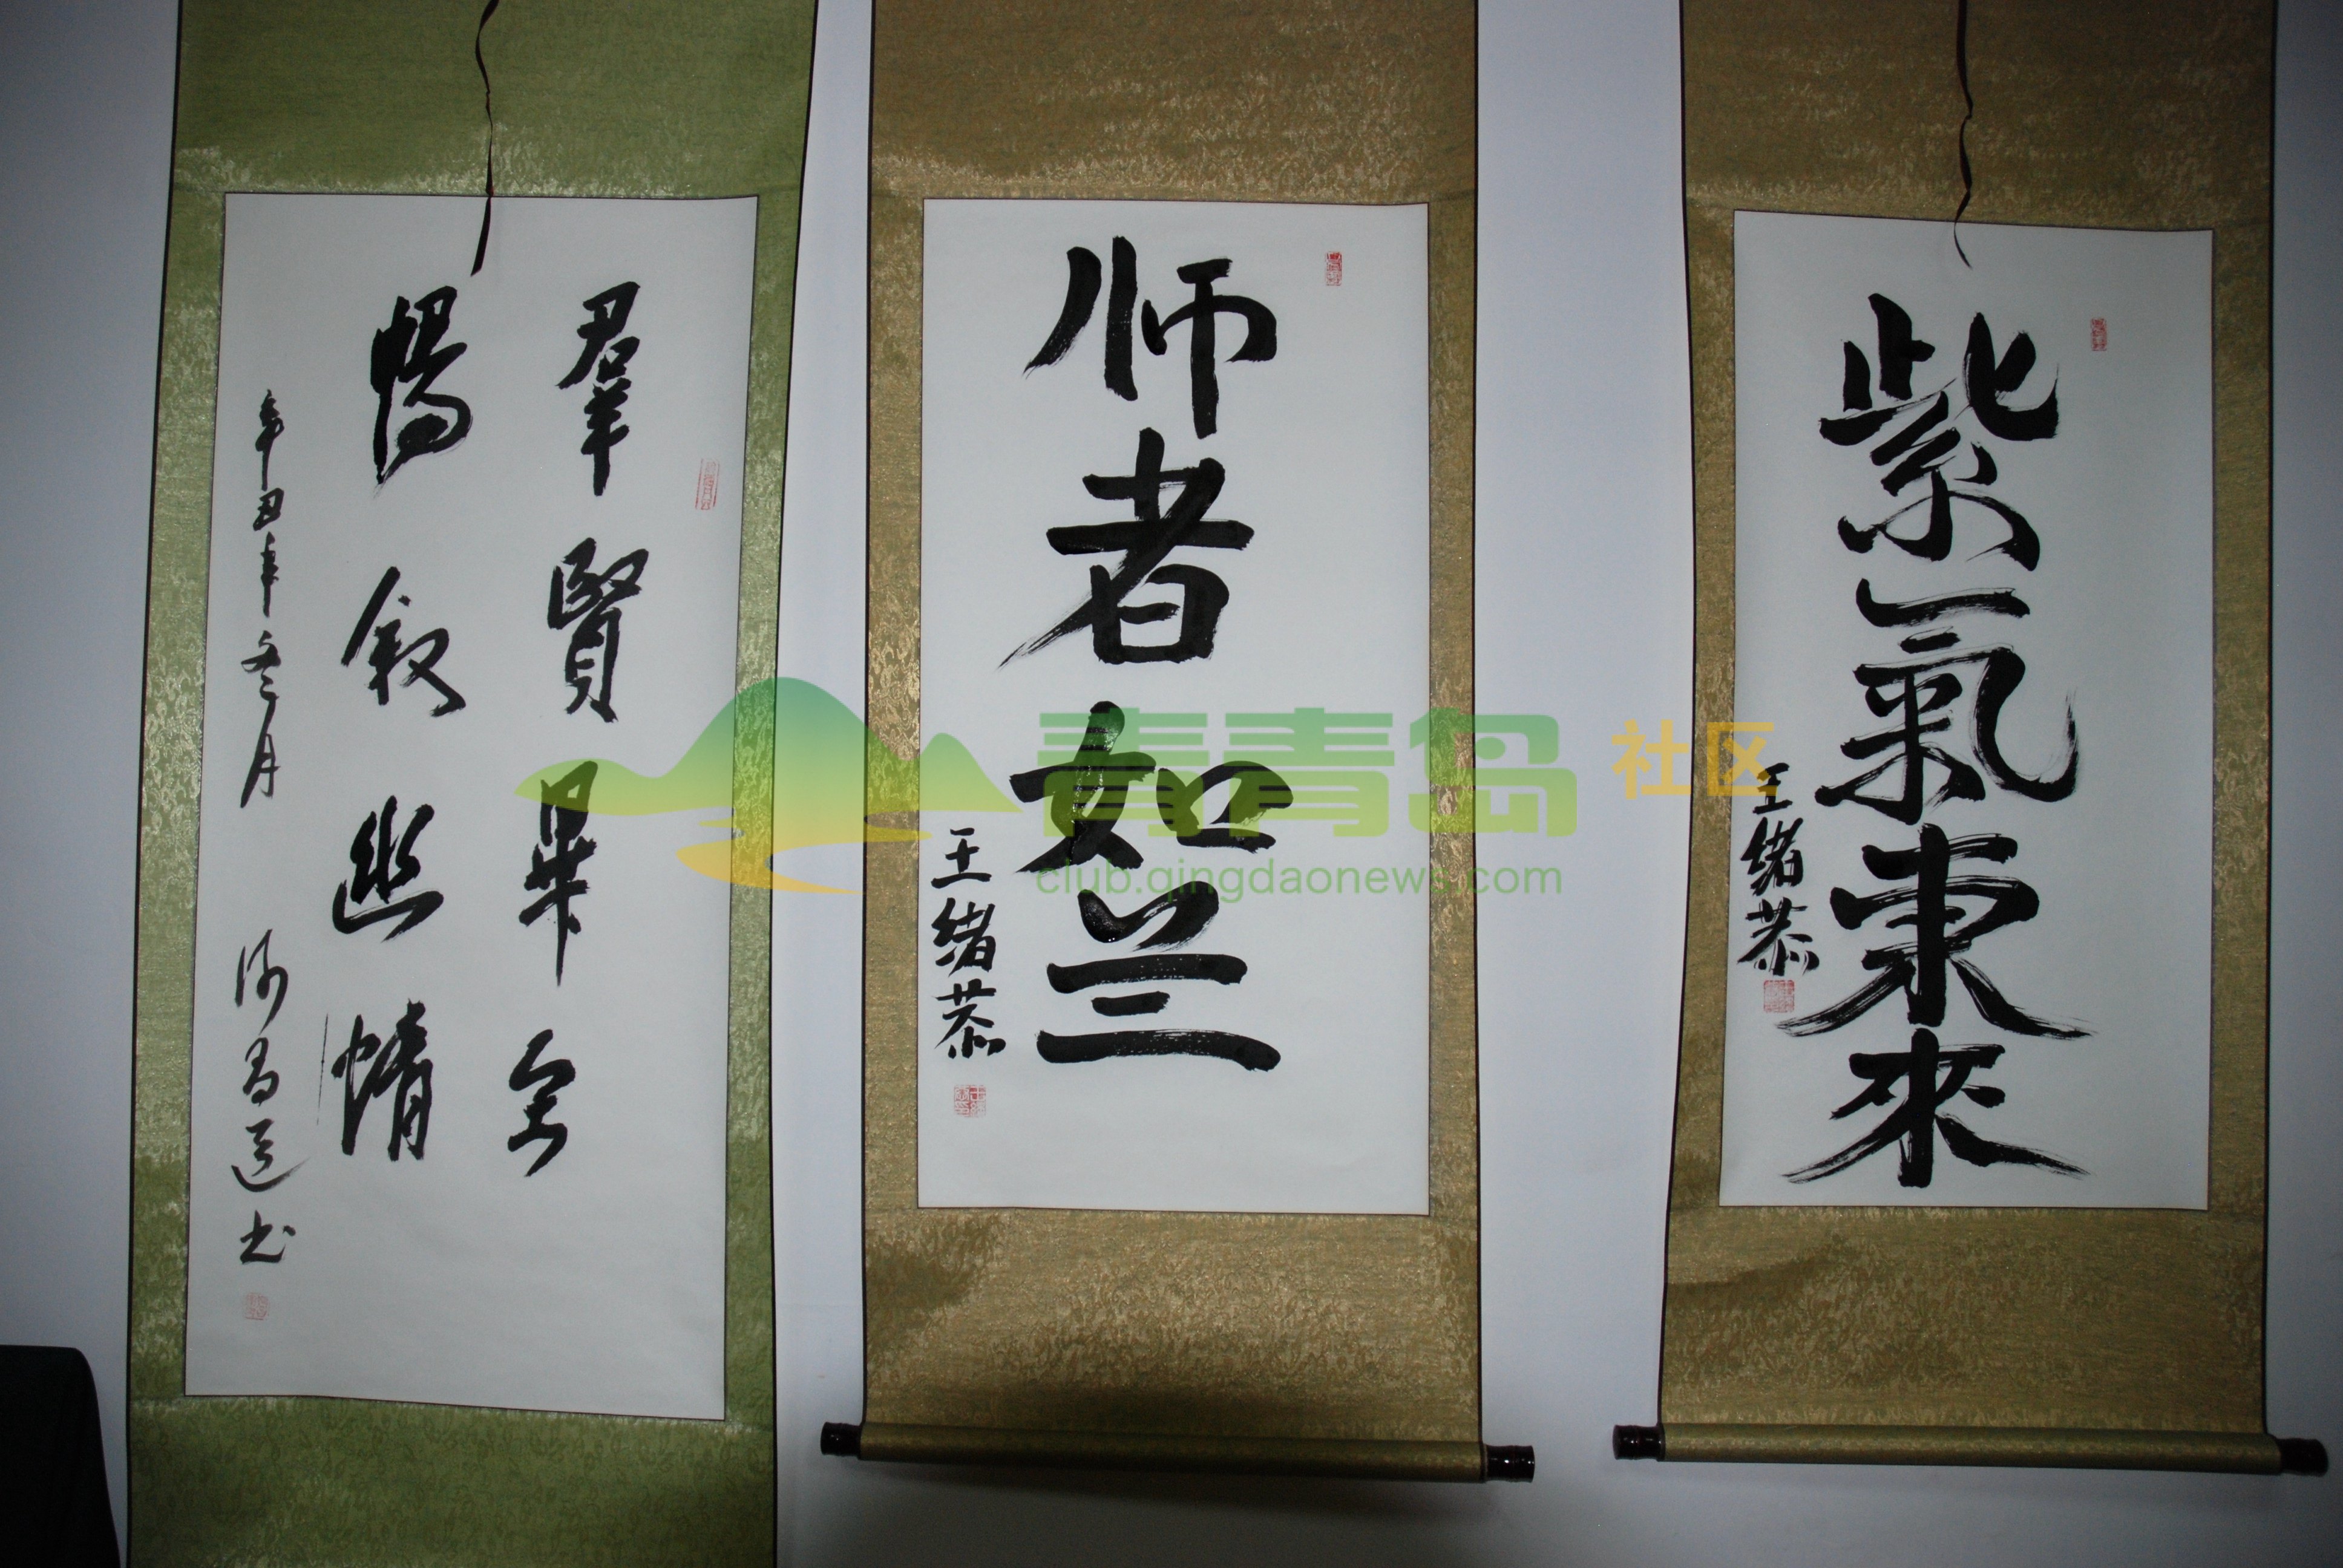 紫氣東來
王緒恭
师者如兰
王绪恭
羣賢畢至
暢叙幽情
辛丑年冬月
书
青青岛 社区
club.qingdaonews.com